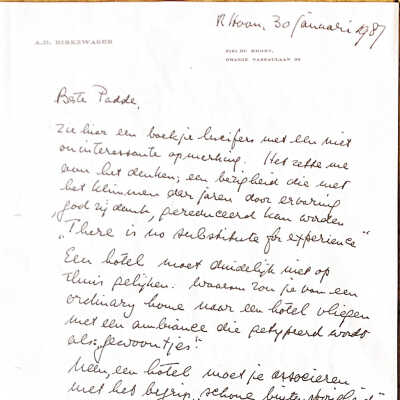 R'Hoon, 30 januari 1987
A.D. DIRKZWAGER
ORANJE NASSAULAAN
Beste Padde,
Zie hier een boekje lucifers met een niet
oninteressante opmerking. Het zette me
aan het denken; een bezigheid die met
het klimmen der jaren door ervaring
"god zij dank, gereduceerd kan worden
"There is no substitute for experience"
Een hotel moet duidelijk niet op
thuis gelijken. Waarom zou je van een
ordinary home naar een hotel vliegen
met een ambiance die getypeerd wordt
als "gewoontjes".
Neen, een hotel moet je associeren
met het begrip, schone